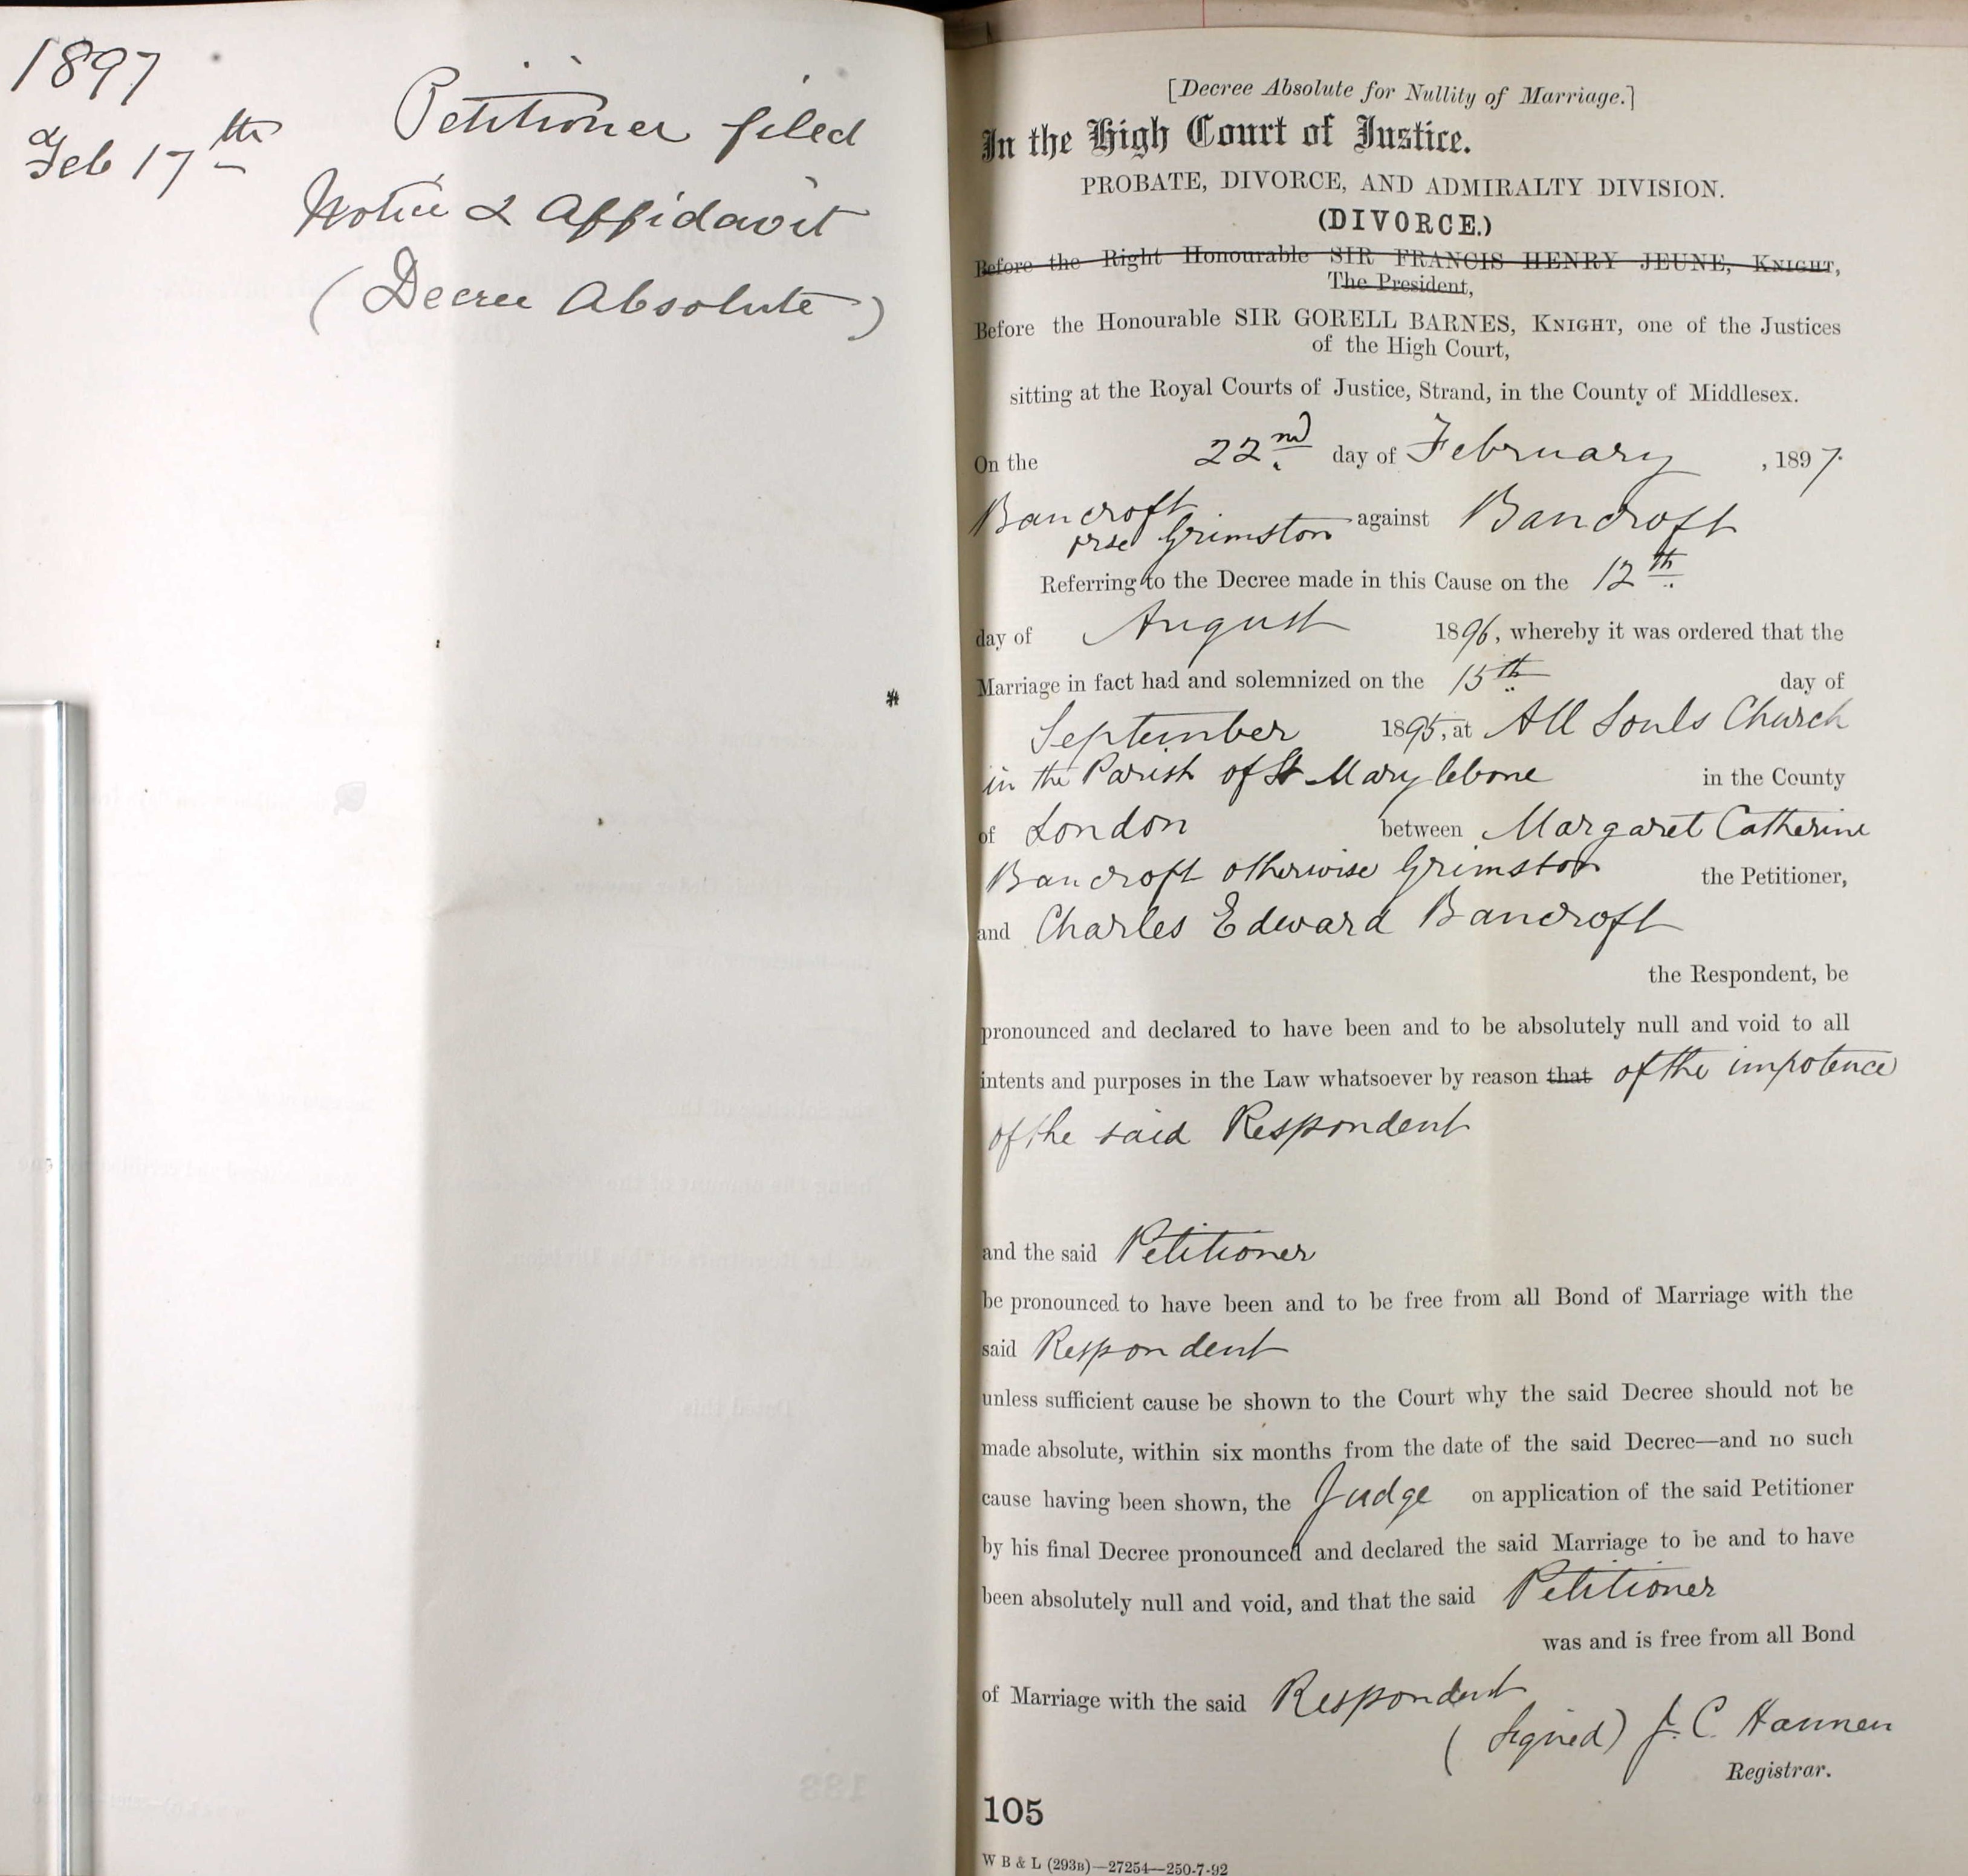 1897
Feb 17th
Petitioner filed
Notice & Affidavit
(Decree Absolute)
[Decree Absolute for Nullity of Marriage.]
In the High Court of Justice.
PROBATE, DIVORCE, AND ADMIRALTY DIVISION.
(DIVORCE.)
Before the Right Honourable SIR FRANCIS HENRY JEUNE, KNIGHT,
The President,
Before the Honourable SIR GORELL BARNES, KNIGHT, one of the Justices
of the High Court,
sitting at the Royal Courts of Justice, Strand, in the County of Middlesex.
On the 22nd day of February, 1897.
Bancroft
orse Grimston against Bancroft
Referring to the Decree made in this Cause on the 12th
day of August 1896, whereby it was ordered that the
Marriage in fact had and solemnized on the 15th day of
September 1895, at All Souls Church
in the Parish of St Marylebone in the County
of London between Margaret Catherine
Bancroft otherwise Grimston the Petitioner,
and Charles Edward Bancroft
the Respondent, be
pronounced and declared to have been and to be absolutely null and void to all
intents and purposes in the Law whatsoever by reason that of the impotence
of the said Respondent
and the said Petitioner
be pronounced to have been and to be free from all Bond of Marriage with the
said Respondent
unless sufficient cause be shown to the Court why the said Decree should not be
made absolute, within six months from the date of the said Decree—and no such
cause having been shown, the Judge on application of the said Petitioner
by his final Decree pronounced and declared the said Marriage to be and to have
been absolutely null and void, and that the said Petitioner
was and is free from all Bond
of Marriage with the said Respondent
(Signed) J. C. Hannen
Registrar.
105
W B & L (293B)—27254—250-7-92